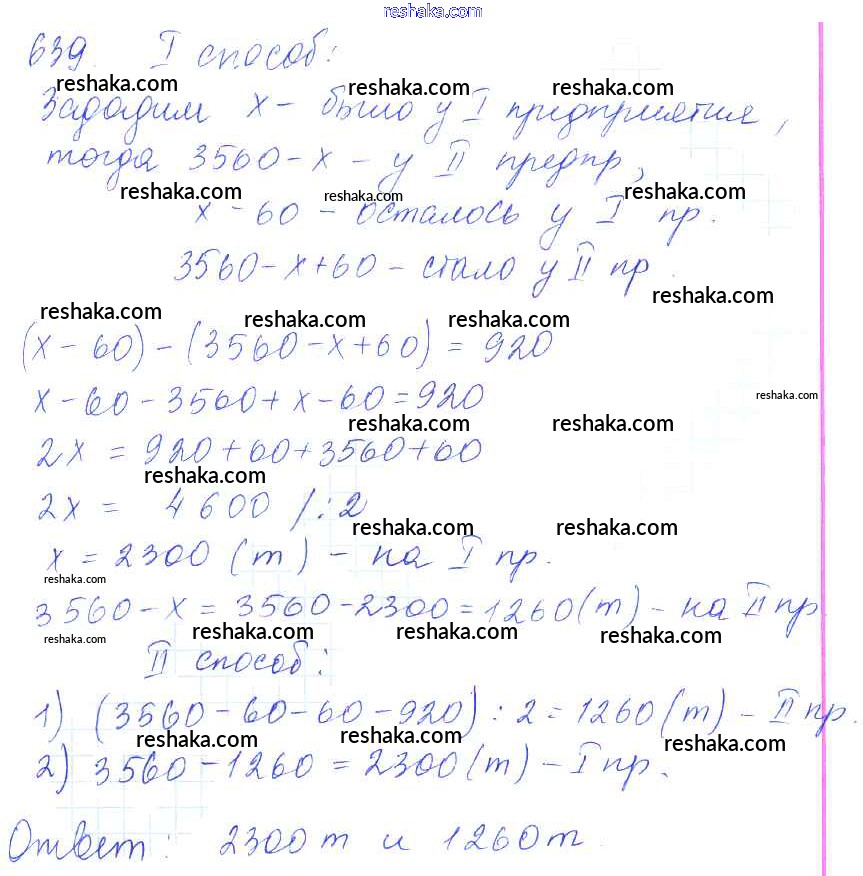 reshaka.com
639. I способ:
reshaka.com reshaka.com reshaka.com
Зададим x - было у I предприятия,
тогда 3560-x - у II предпр,
reshaka.com reshaka.com reshaka.com reshaka.com
x - 60 - осталось у I пр.
3560-x+60 - стало у II пр.
reshaka.com
reshaka.com reshaka.com reshaka.com
(x - 60) - (3560-x+60) = 920
x - 60 - 3560 + x - 60 = 920
reshaka.com
reshaka.com reshaka.com
2x = 920+60+3560+60
reshaka.com
2x = 4600 /:2
reshaka.com reshaka.com
x = 2300 (т) - на I пр.
reshaka.com
3560 - x = 3560-2300 = 1260(т) - на II пр.
reshaka.com reshaka.com reshaka.com reshaka.com
II способ:
1) (3560-60-60-920) : 2 = 1260 (т) - II пр.
reshaka.com reshaka.com reshaka.com
2) 3560-1260 = 2300 (т) - I пр.
Ответ: 2300 т и 1260 т.